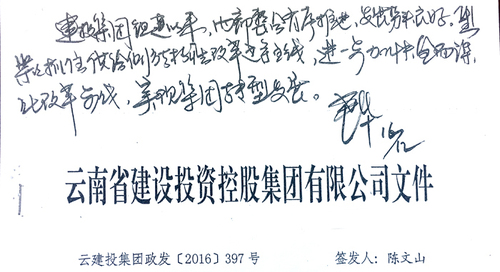 建投集团组建以来，内部整合有序推进，发展势头良好。望
紧紧抓住供给侧结构性改革这条主线，进一步加快全面深
化改革步伐，实现集团转型发展。
云南省建设投资控股集团有限公司文件
云建投集团政发〔2016〕397 号 签发人：陈文山